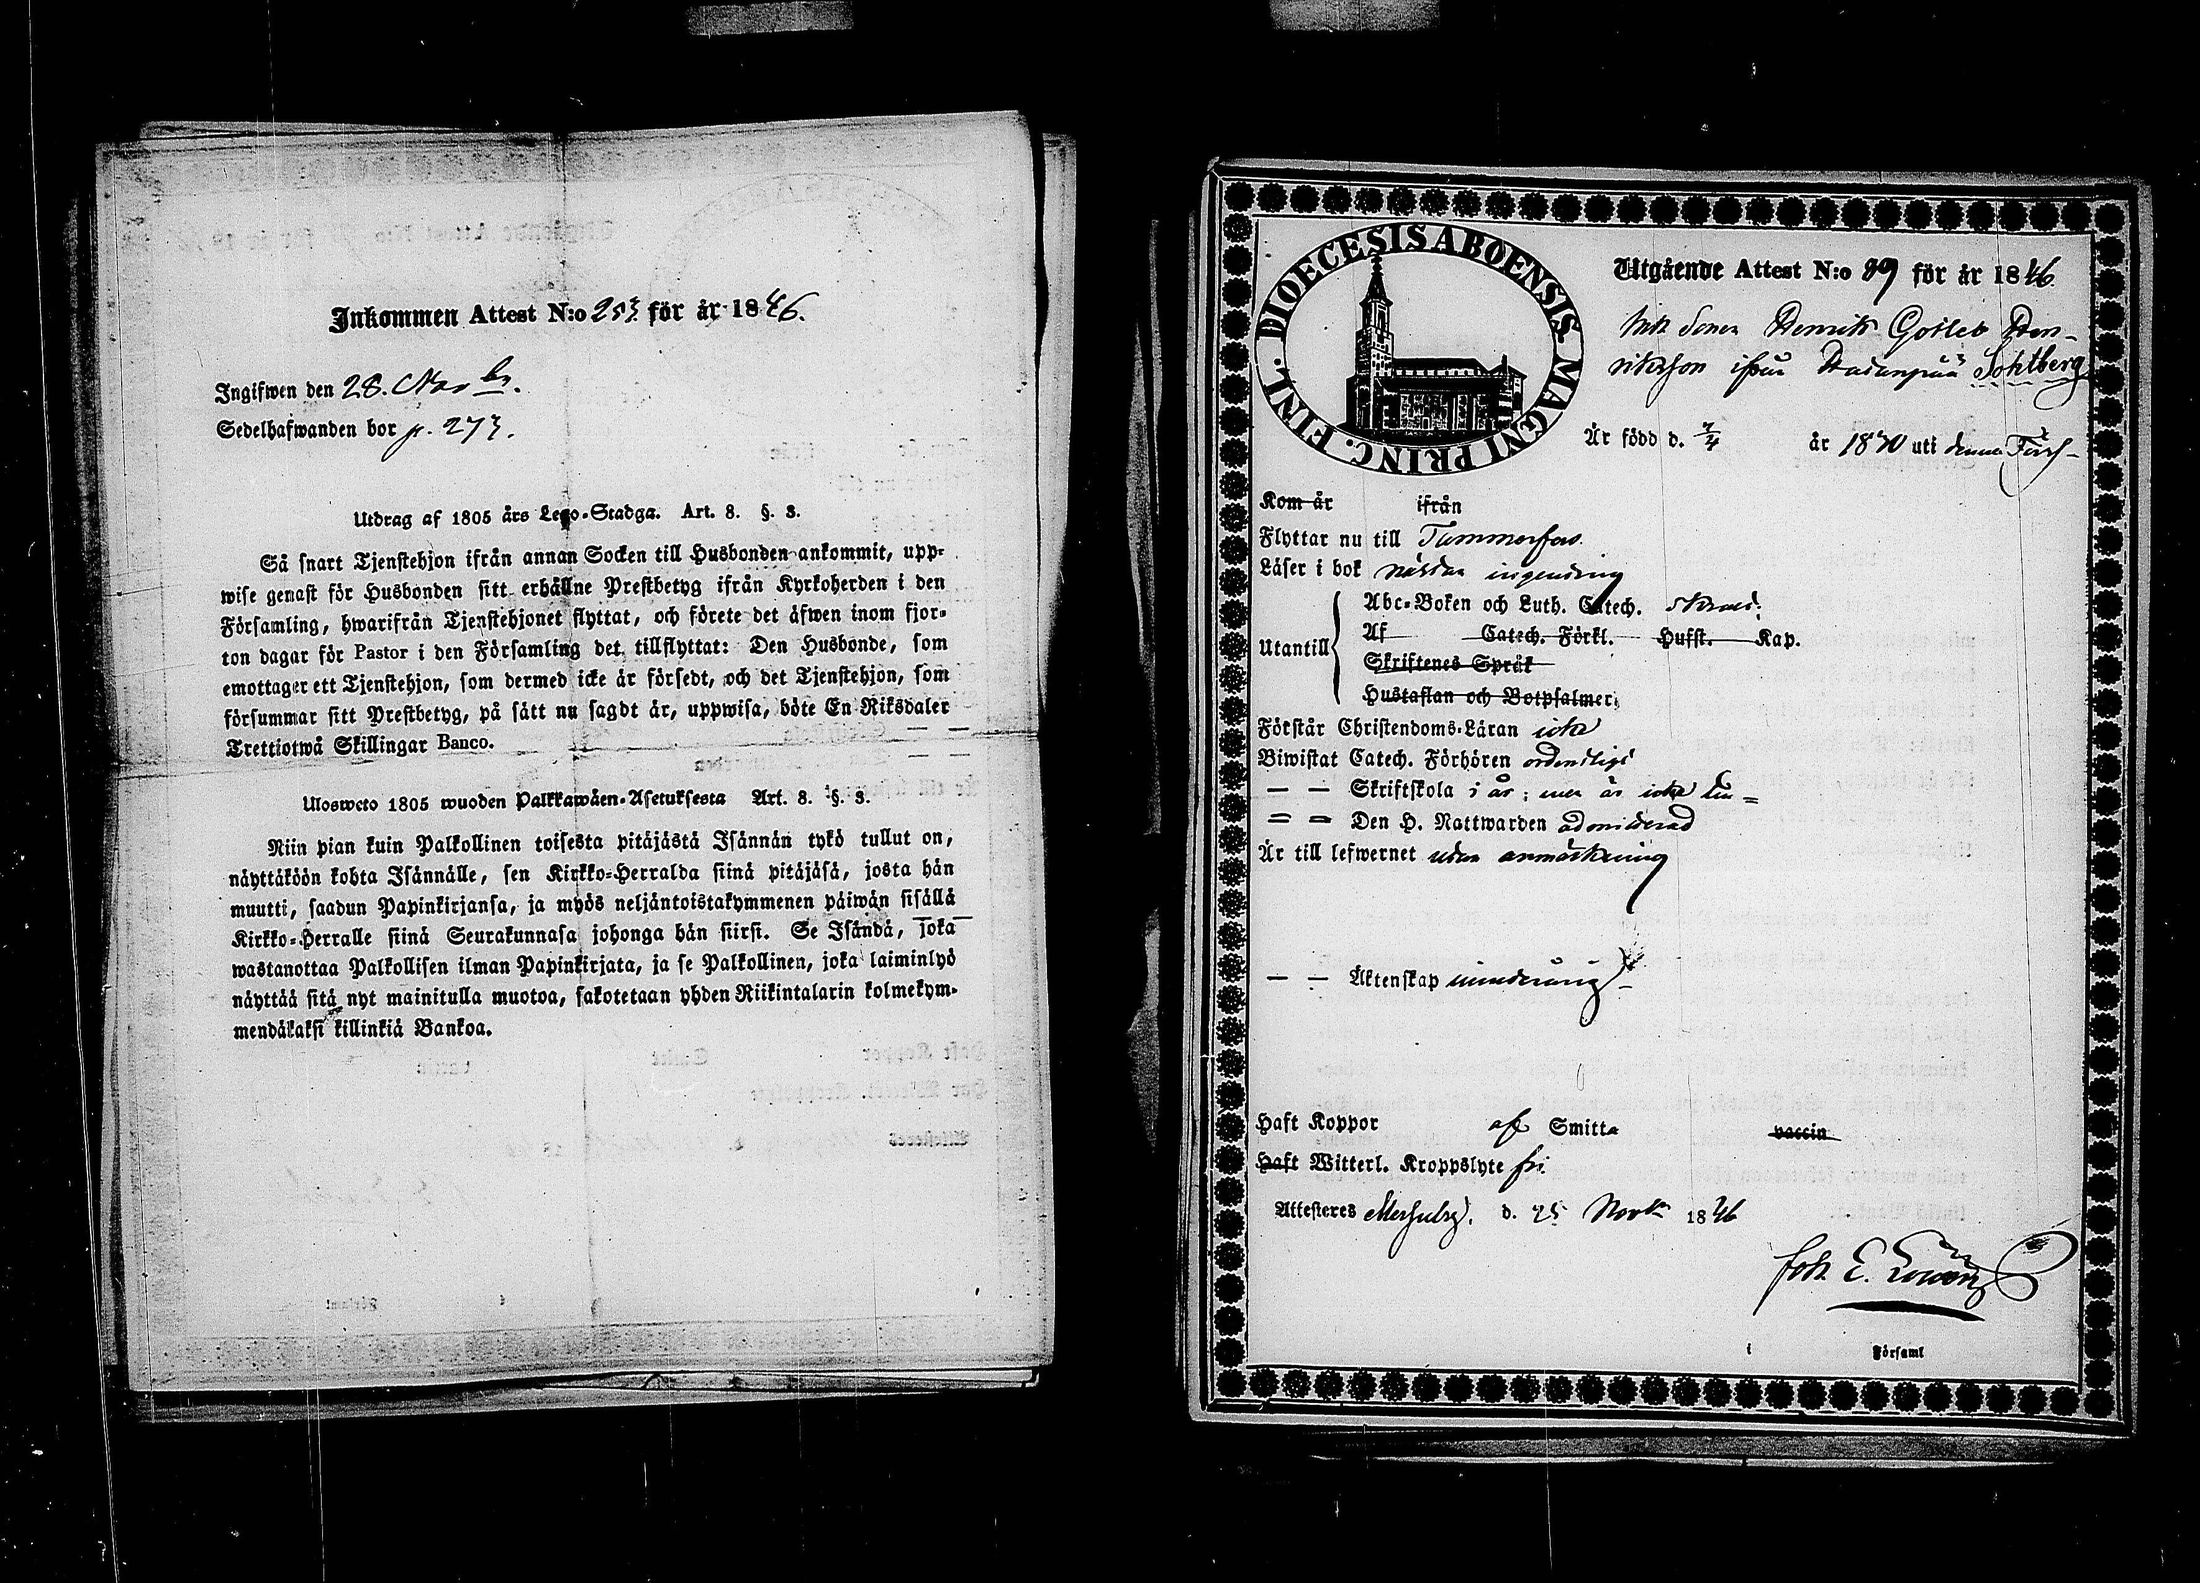 Inkommen Attest N:o 253 för år 1846.
Ingifwen den 28. Novbr.
Sedelhafwanden bor p. 273.
Utdrag af 1805 års Lego-Stadga. Art. 8. §. 3.
Så snart Tjenstehjon ifrån annan Socken till Husbonden ankommit, upp-
wise genast för Husbonden sitt erhållne Prestbetyg ifrån Kyrkoherden i den
Församling, hwarifrån Tjenstehjonet flyttat, och förete det äfwen inom fjor-
ton dagar för Pastor i den Församling det tillflyttat: Den Husbonde, som
emottager ett Tjenstehjon, som dermed icke är försedt, och det Tjenstehjon, som
försummar sitt Prestbetyg, på sätt nu sagdt är, uppwisa, böte En Riksdaler
Trettiotwå Skillingar Banco.
Uloswcto 1805 wuoden Palkkawäen-Asetuksesta Art. 8. §. 3.
Niin pian kuin Palkollinen toisesta pitäjästä Isännän tykö tullut on,
näyttäköön kohta Isännälle, sen Kirkko-Herralda siinä pitäjäsä, josta hän
muutti, saadun Papinkirjansa, ja myös neljäntoistakymmenen päiwän sisällä
Kirkko-Herralle siinä Seurakunnasa johonga hän siirsi. Se Isändä, joka
wastanottaa Palkollisen ilman Papinkirjata, ja se Palkollinen, joka laiminlyö
näyttää sitä nyt mainitulla muotoa, sakotetaan yhden Riikintalarin kolmekym-
mendäkaksi killinkiä Bankoa.
DIOECESIS ABOENSIS MAGNI PRINC. FINL.
Utgående Attest N:o 99 för år 1846.
Sonen Henrik Gotleb Hen-
riksson ifrån Sohlberg
Är född d. 7/4 år 1830 uti denna Förs-
Kom år ifrån
Flyttar nu till Tammerfors.
Läser i bok nästan ingenting
Utantill
Abc-Boken och Luth. Catech.
Af Catech. Förkl. Husst. Kap.
Skriftenes Språk
Hustaflan och Botpsalmer.
Förstår Christendoms-Läran icke
Biwistat Catech. Förhören ordentligt
— — Skriftskola i år; men är icke
— — Den H. Nattwarden admitterad
Är till lefwernet utan anmärkning
— — Äktenskap minderårig
Haft Koppor af Smitta vaccin
Haft Witterl. Kroppslyte fri
Attesteres d. 25 Novbr 1846
Joh. E.
i Församl